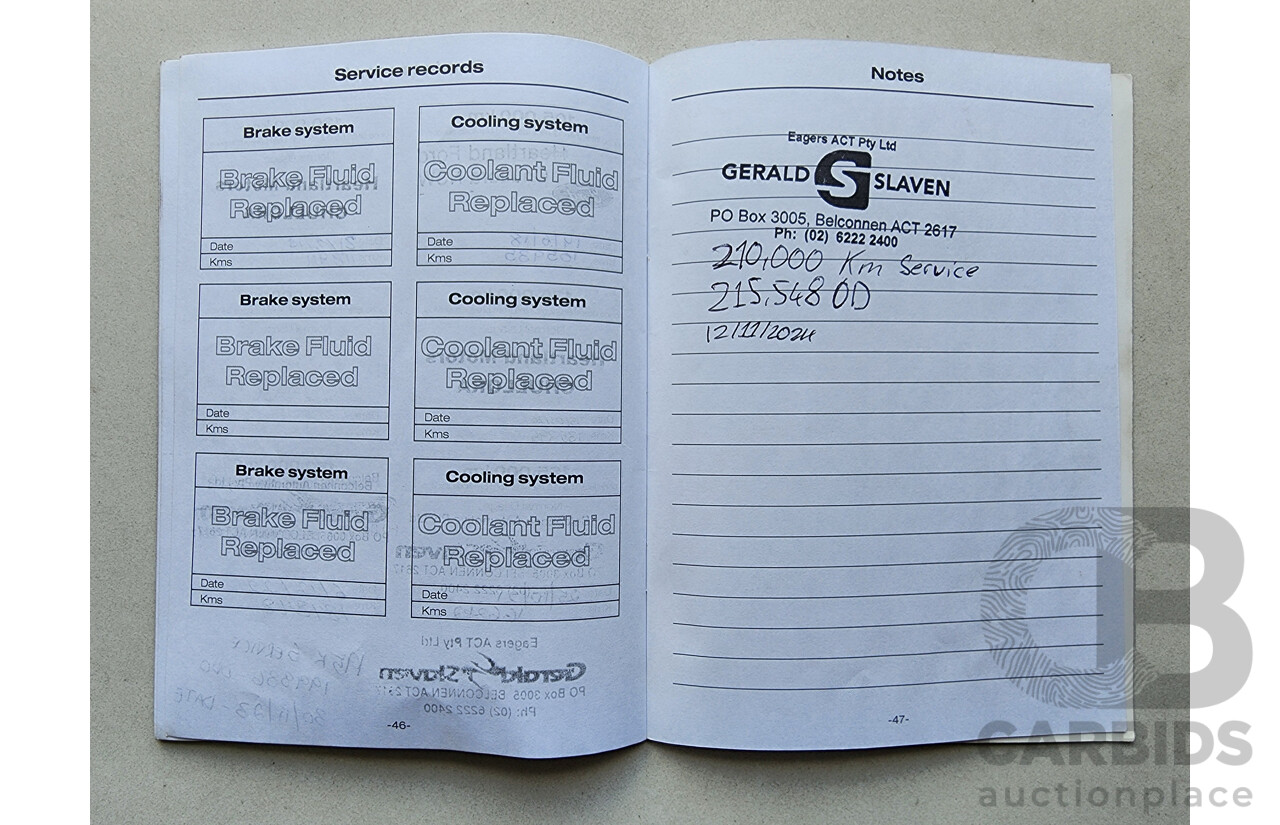 Service records
Brake system
Brake Fluid
Replaced
Date
Kms
Cooling system
Coolant Fluid
Replaced
Date
Kms
Brake system
Brake Fluid
Replaced
Date
Kms
Cooling system
Coolant Fluid
Replaced
Date
Kms
Brake system
Brake Fluid
Replaced
Date
Kms
Cooling system
Coolant Fluid
Replaced
Date
Kms
Eagers ACT Pty Ltd
Gerald Slaven
PO Box 3005 BELCONNEN ACT 2617
Ph: (02) 6222 2400
-46-
Notes
Eagers ACT Pty Ltd
GERALD S SLAVEN
PO Box 3005, Belconnen ACT 2617
Ph: (02) 6222 2400
210,000 Km Service
215,548 OD
12/11/2024
-47-
CB
CARBIDS
auctionplace